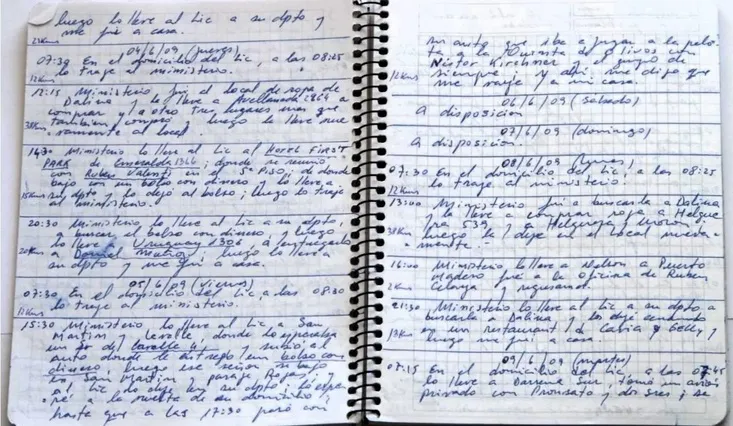 luego lo lleve al Lic a su dpto y
me fui a casa.
04/6/09 (jueves)
07:30 En el domicilio del Lic, a las 08:25
lo traje al ministerio.
12:15 Ministerio fui al local de ropa de
Dalina y lo lleve a Avellaneda
comprar y a otro tres lugares mas que
también compró y luego lo lleve nue-
vamente al local.
14:30 Ministerio lo lleve al Lic al Hotel FIRST
PARK de Esmeralda 1366; donde se reunió
con Ruben Valenti en el 5º PISO; de donde
bajo con un bolso con dinero y lo lleve a
15Kms su dpto y lo dejo al bolso; luego lo traje
al ministerio.
20:30 Ministerio lo lleve al Lic a su dpto,
a buscar el bolso con dinero, y luego
lo lleve a Uruguay 1306, a entregarlo
20Kms a Daniel Muñoz, luego lo lleve a
su dpto y me fui a casa.
05/6/09 (viernes)
07:30 En el domicilio del Lic, a las 08:30
lo traje al ministerio.
15:30 Ministerio lo lleve al Lic a San
Martin y Lavalle donde lo esperaba
un sr de Lavalle y subio al
auto donde le entrego un bolso con
dinero, luego ese señor se bajo
en San Martin y pasaje Rojas; y
al Lic lo deje en su dpto; lo espe-
ré a la vuelta de su domicilio,
hasta que a las 17:30 pasó con
su auto que iba a jugar a la pelo-
ta a la Quinta de Olivos con
Néstor Kirchner y el grupo de
siempre. Y ahi me dijo que
me vaya a mi casa.
06/6/09 (sabado)
A disposicion
07/6/09 (domingo)
A disposicion.
08/6/09 (lunes)
07:30 En el domicilio del Lic, a las 08:25
12Kms lo traje al ministerio.
13:00 Ministerio fui a buscarla a Dalina
y la lleve a comprar ropa a Helgue
ra 539, a Helguera y Moron.
38Kms luego la deje en el local nueva-
mente.
16:00 Ministerio lo lleve a Nelson a Puerto
Madero fue a la oficina de Ruben
2Kms y regresamos.
21:30 Ministerio lo lleve al Lic a su dpto a
buscarla a Dalina y lo deje cenando
13Kms en un restaurant de Cabia y Gelly y
luego me fui a casa.
09/6/09 (martes)
07:15 En el domicilio del Lic, a las 07:45
lo lleve a Darsena Sur, tomó un avión
privado con y dos sres; se